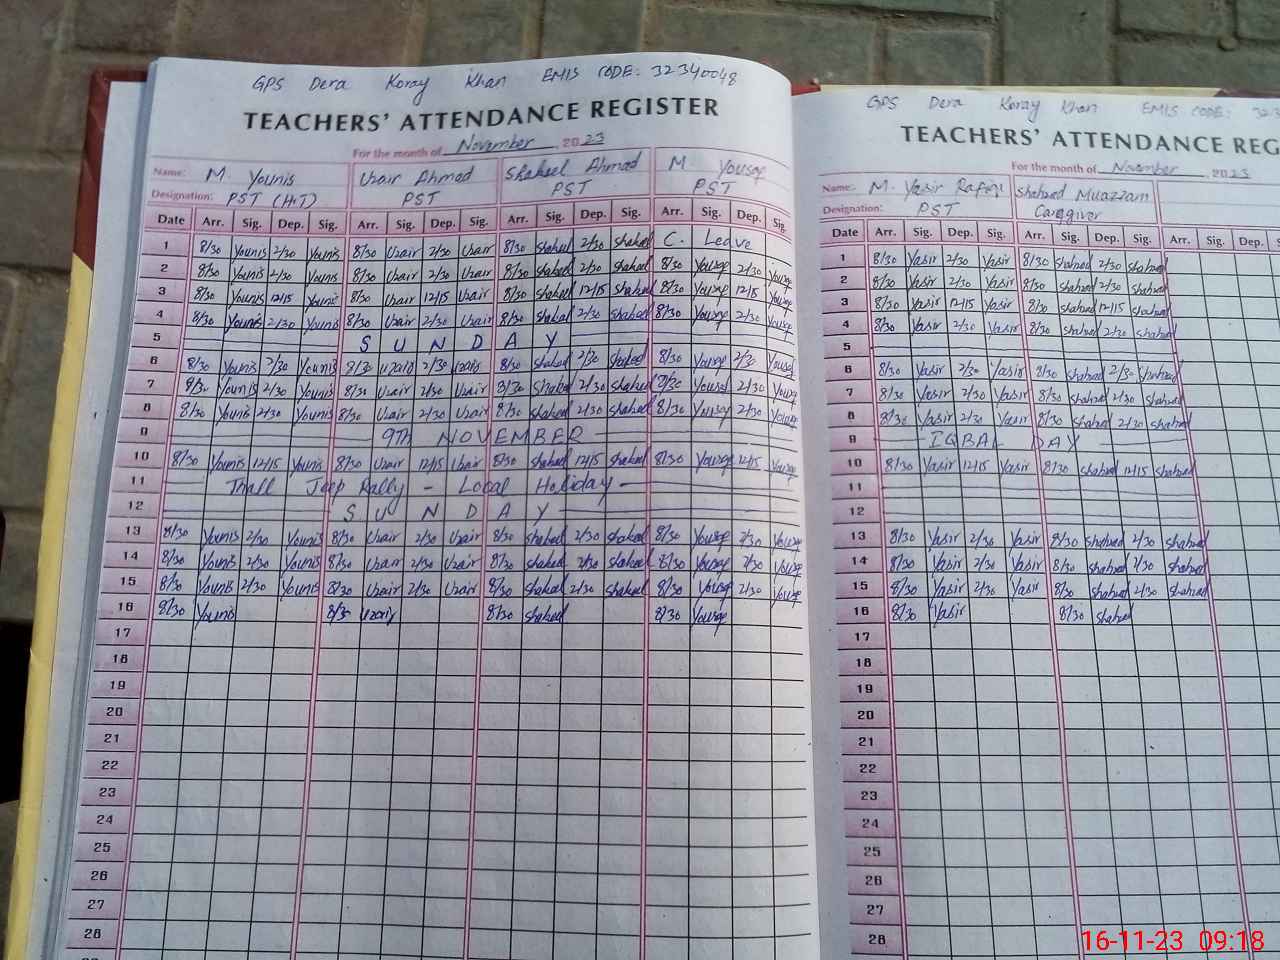 GPS Dera Koray Khan EMIS CODE: 32340048
TEACHERS' ATTENDANCE REGISTER
For the month of November, 2023
Name: M. Younis Uzair Ahmad Shakeel Ahmad M. Yousaf
Designation: PST (H.T) PST PST PST
Date Arr. Sig. Dep. Sig. Arr. Sig. Dep. Sig. Arr. Sig. Dep. Sig. Arr. Sig. Dep. Sig.
1 8/30 Younis 2/30 Younis 8/30 Uzair 2/30 Uzair 8/30 Shakeel 2/30 Shakeel C. Leave
2 8/30 Younis 2/30 Younis 8/30 Uzair 2/30 Uzair 8/30 Shakeel 2/30 Shakeel 8/30 Yousaf 2/30 Yousaf
3 8/30 Younis 12/15 Younis 8/30 Uzair 12/15 Uzair 8/30 Shakeel 12/15 Shakeel 8/30 Yousaf 12/15 Yousaf
4 8/30 Younis 2/30 Younis 8/30 Uzair 2/30 Uzair 8/30 Shakeel 2/30 Shakeel 8/30 Yousaf 2/30 Yousaf
5 S U N D A Y
6 8/30 Younis 2/30 Younis 8/30 Uzair 2/30 Uzair 8/30 Shakeel 2/30 Shakeel 8/30 Yousaf 2/30 Yousaf
7 8/30 Younis 2/30 Younis 8/30 Uzair 2/30 Uzair 8/30 Shakeel 2/30 Shakeel 8/30 Yousaf 2/30 Yousaf
8 8/30 Younis 2/30 Younis 8/30 Uzair 2/30 Uzair 8/30 Shakeel 2/30 Shakeel 8/30 Yousaf 2/30 Yousaf
9 9TH NOVEMBER
10 8/30 Younis 12/15 Younis 8/30 Uzair 12/15 Uzair 8/30 Shakeel 12/15 Shakeel 8/30 Yousaf 12/15 Yousaf
11 Thall Jeep Rally - Local Holiday
12 S U N D A Y
13 8/30 Younis 2/30 Younis 8/30 Uzair 2/30 Uzair 8/30 Shakeel 2/30 Shakeel 8/30 Yousaf 2/30 Yousaf
14 8/30 Younis 2/30 Younis 8/30 Uzair 2/30 Uzair 8/30 Shakeel 2/30 Shakeel 8/30 Yousaf 2/30 Yousaf
15 8/30 Younis 2/30 Younis 8/30 Uzair 2/30 Uzair 8/30 Shakeel 2/30 Shakeel 8/30 Yousaf 2/30 Yousaf
16 8/30 Younis 8/30 Uzair 8/30 Shakeel 8/30 Yousaf
17
18
19
20
21
22
23
24
25
26
27
28
GPS Dera Koray Khan EMIS CODE:
TEACHERS' ATTENDANCE REG
For the month of November, 2023
Name: M. Yasir Rafiq Shahzad Muazzam
Designation: PST Caregiver
Date Arr. Sig. Dep. Sig. Arr. Sig. Dep. Sig. Arr. Sig. Dep.
1 8/30 Yasir 2/30 Yasir 8/30 Shahzad 2/30 Shahzad
2 8/30 Yasir 2/30 Yasir 8/30 Shahzad 2/30 Shahzad
3 8/30 Yasir 12/15 Yasir 8/30 Shahzad 12/15 Shahzad
4 8/30 Yasir 2/30 Yasir 8/30 Shahzad 2/30 Shahzad
5
6 8/30 Yasir 2/30 Yasir 8/30 Shahzad 2/30 Shahzad
7 8/30 Yasir 2/30 Yasir 8/30 Shahzad 2/30 Shahzad
8 8/30 Yasir 2/30 Yasir 8/30 Shahzad 2/30 Shahzad
9 IQBAL DAY
10 8/30 Yasir 12/15 Yasir 8/30 Shahzad 12/15 Shahzad
11
12
13 8/30 Yasir 2/30 Yasir 8/30 Shahzad 2/30 Shahzad
14 8/30 Yasir 2/30 Yasir 8/30 Shahzad 2/30 Shahzad
15 8/30 Yasir 2/30 Yasir 8/30 Shahzad 2/30 Shahzad
16 8/30 Yasir 8/30 Shahzad
17
18
19
20
21
22
23
24
25
26
27
28
16-11-23 09:18